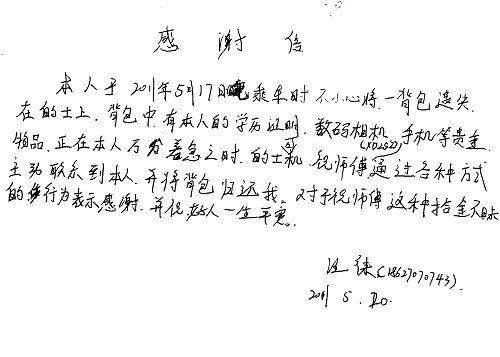 感谢信
本人于2011年5月17日乘车时不小心将一背包遗失
在的士上,背包中有本人的学历证明,数码相机,手机等贵金
物品,正在本人万分着急之时,的士司机祝师傅通过各种方式
主动联系到本人,并将背包归还我。对于祝师傅这种拾金不昧
的行为表示感谢,并祝好人一生平安。
(18627070743)
2011 5. 20.